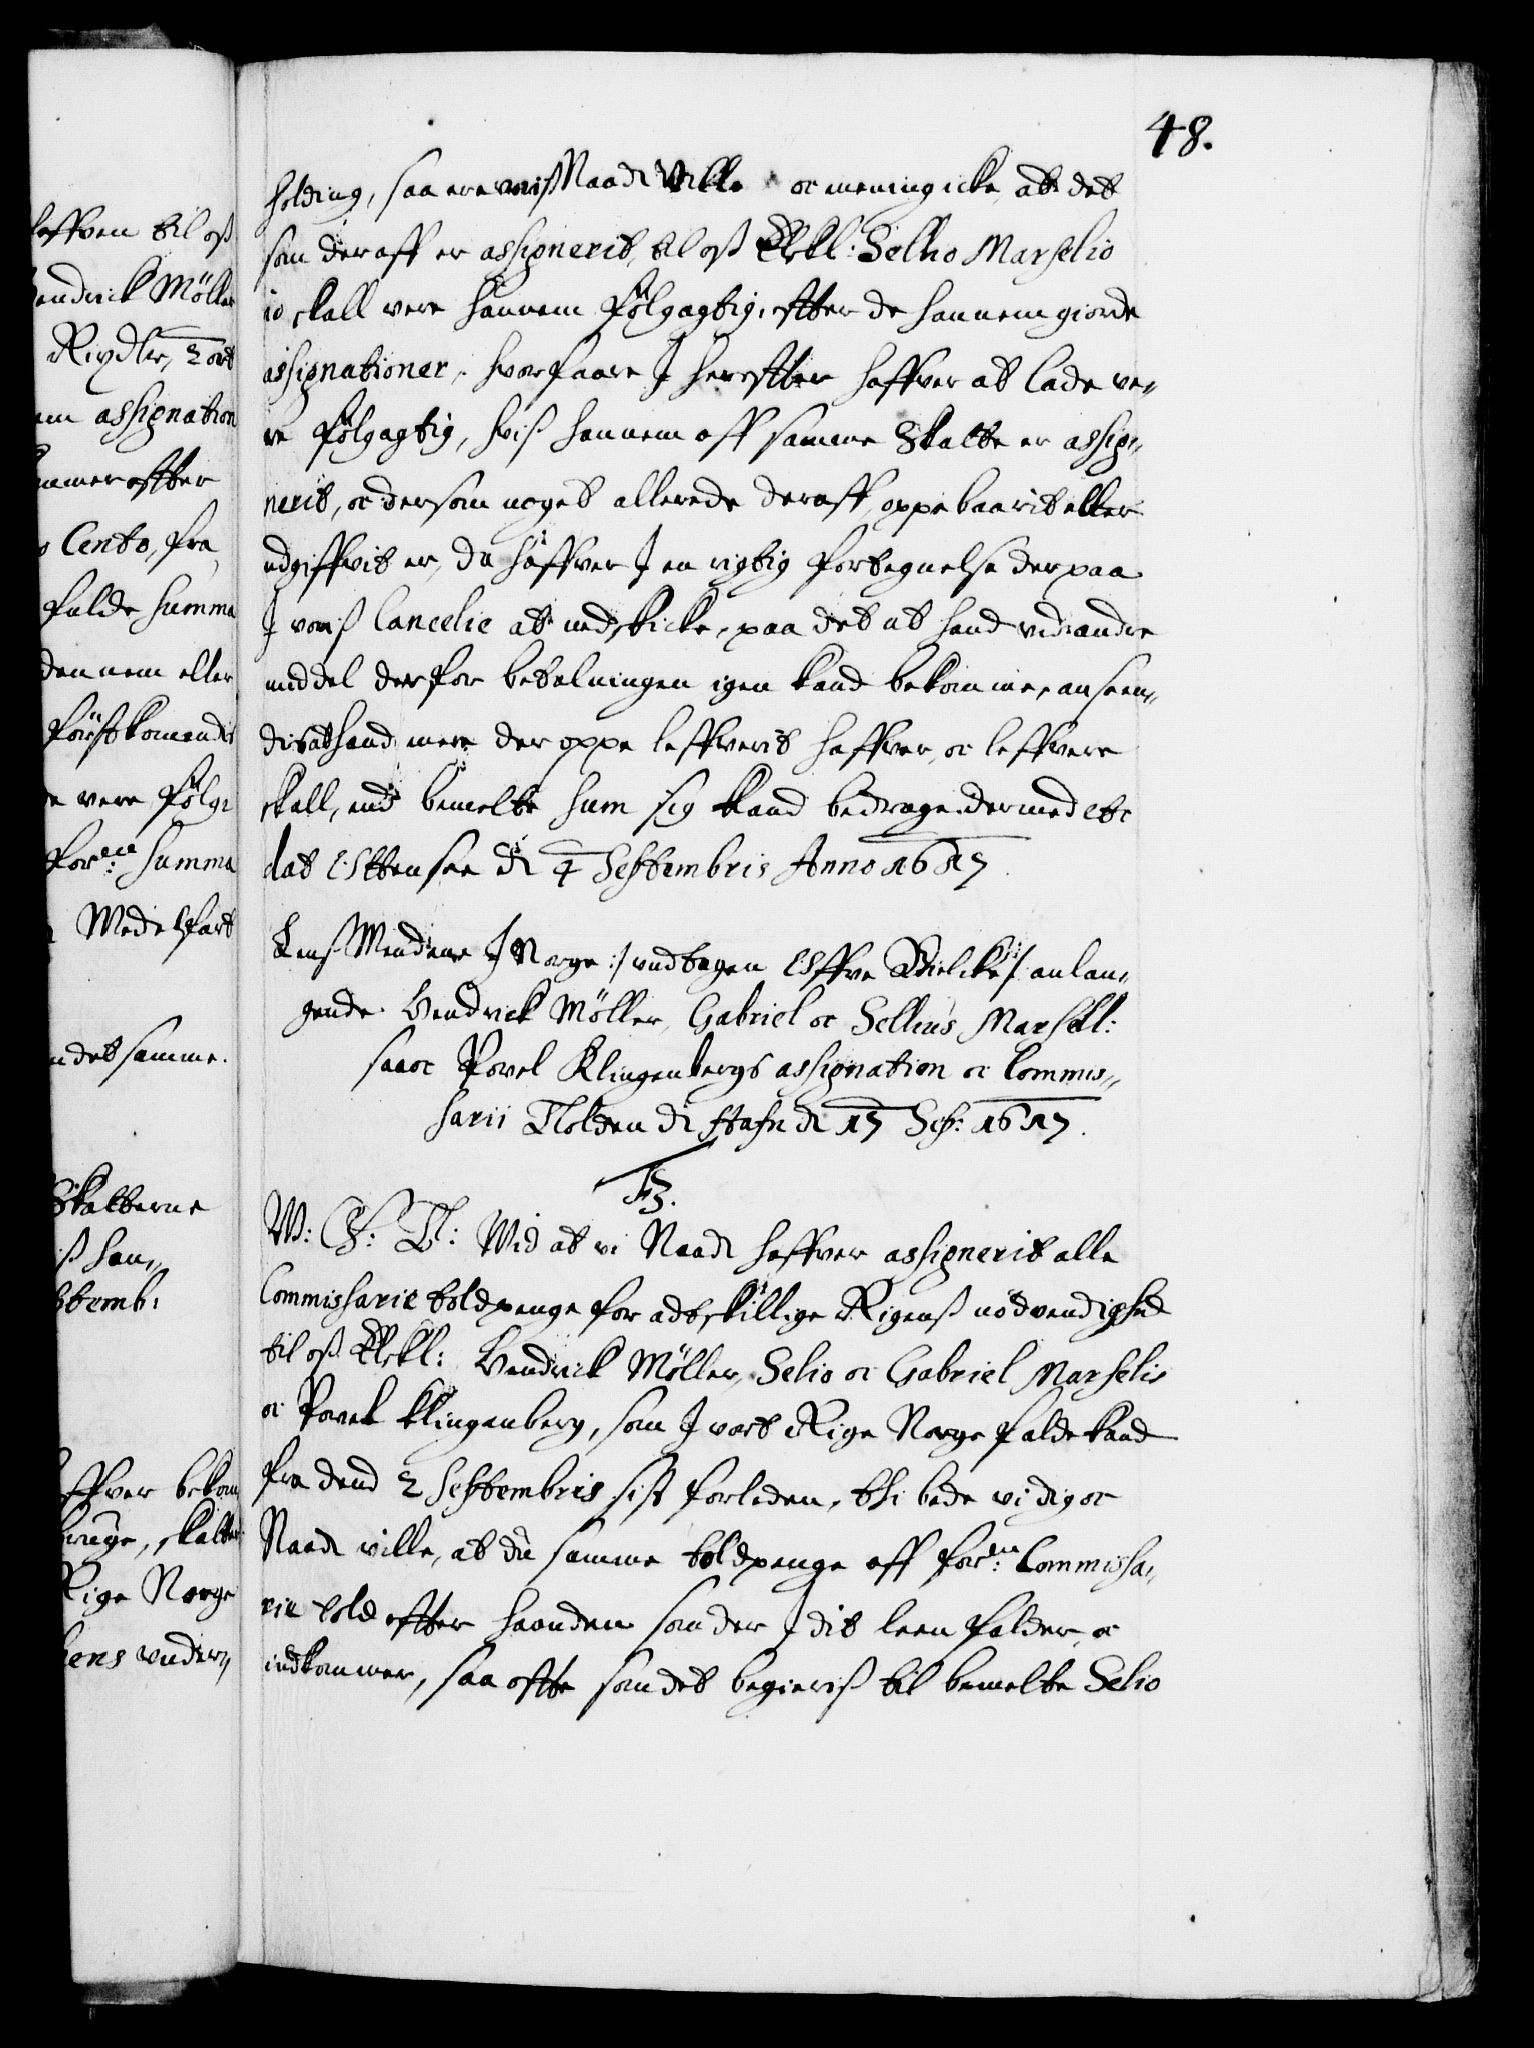 48.
holding, saa ere voris Naadi Ville oc mening icke, at det
som der aff er assignerit, til oss Elskl: Selio Marselio
io skall vere hannem følgagtig, effter de hannem giorde
assignationer, hvorfaare J hereffter haffver at lade ve„
re følgagtig, hvis hannem aff samme Skatte er assig„
nerit, oc dersom noget allerede deraff, oppebaarit eller
udgiffvit er, da haffver J en rigtig fortegnelse derpaa
J voris Cancelie at nedskicke, paa det at hand ved andre
middel derfor betalningen igen kand bekomme, anseen„
dis at hand mere der oppe leffverit haffver, oc leffvere
skall, end bemelte Sum sig kand bedrage. dermed etc
dat Ottensee di 4 Septembris Anno 1657
Lens Mendene J Norge :/ undtagen Offve Bielcke /: anlan„
gende Hendrick Möller, Gabriel oc Sellius Marsel:
saa oc Povel Klingenbergs assignation oc Commis„
sarii Tolden di Hafn di 17 Sep: 1657.
F3.
W: G: T: Wid at vi Naadi haffver assignerit alle
Commissarie toldpenge for adtskillige Rigens nödvendighed
til oss Elskl: Hendrick Möller, Selio oc Gabriel Marselis
oc Povel Klingenberg, som J vort Rige Norge falde kand
fra dend 2 Septembris sist forleden, thi bede vi dig oc
Naadi ville, at du samme toldpenge aff for:ne Commissa„
rie told effter haanden som der J dit leen falder, oc
indkommer, saa offte som det begieris til bemelte Selio
leffven til oss
Hendrick Möller
Rixdlr, 2 ort
assignation
effter
Cento, fra
falde Summa
dennem eller
förstkomendis
vere følg
for:ne Summa
Medelfart
det samme.
Skatterne
haffver bekom
skatter
Rige Norge
under„